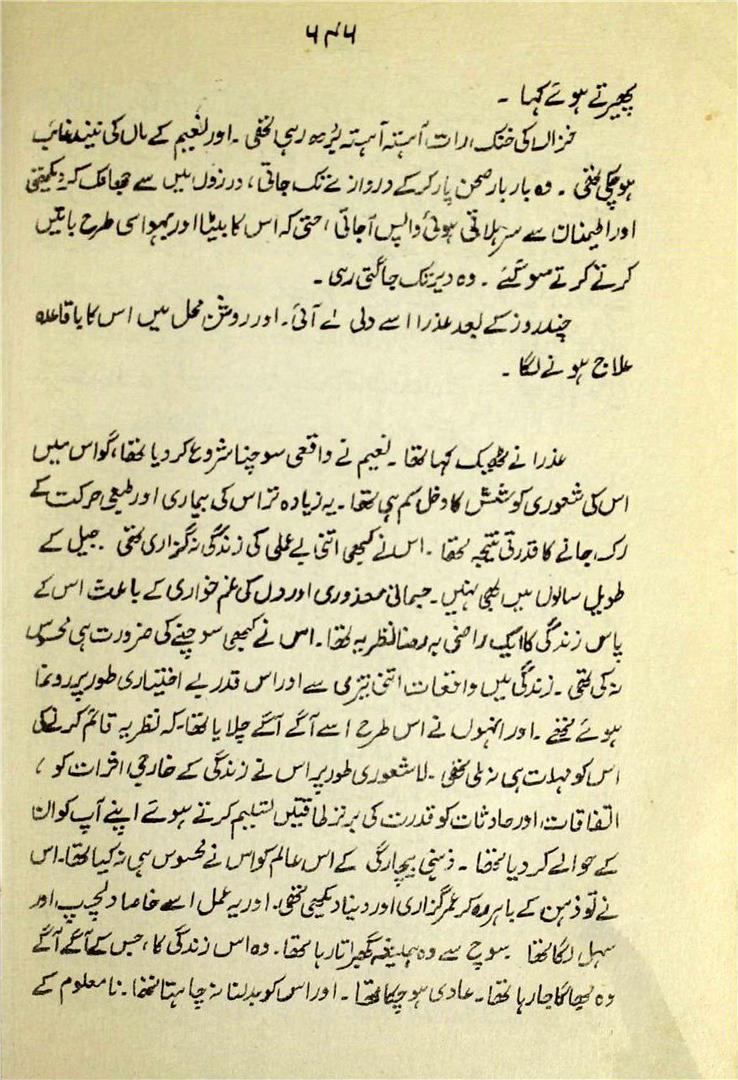 ۶۴۶
پھیرتے ہوئے کہا ۔
خزاں کی خنک رات آہستہ آہستہ بڑھ رہی تھی ۔ اور نعیم کے ماں کی نیند غائب
ہو چکی تھی ۔ وہ بار بار صحن پار کر کے دروازے تک جاتی ، درزوں میں سے جھانک کر دیکھتی
اور اطمینان سے سر ہلاتی ہوئی واپس آ جاتی ، حتیٰ کہ اس کا بیٹا اور بہو اسی طرح باتیں
کرتے کرتے سو گئے ۔ وہ دیر تک جاگتی رہی ۔
چند روز کے بعد عذرا اسے دلی لے آئی ۔ اور روشن محل میں اس کا باقاعدہ
علاج ہونے لگا ۔
عذرا نے ٹھیک کہا تھا ۔ نعیم نے واقعی سوچنا شروع کر دیا تھا ، گو اس میں
اس کی شعوری کوشش کا دخل کم ہی تھا ۔ یہ زیادہ تر اس کی بیماری اور طبعی حرکت کے
رک جانے کا قدرتی نتیجہ تھا ۔ اس نے کبھی اتنی بے عملی کی زندگی نہ گزاری تھی ۔ جیل کے
طویل سالوں میں بھی نہیں ۔ جسمانی معذوری اور دل کی غم خواری کے باعث اس کے
پاس زندگی کا ایک راضی بہ رضا نظریہ تھا ۔ اس نے کبھی سوچنے کی ضرورت ہی محسوس
نہ کی تھی ۔ زندگی میں واقعات اتنی تیزی سے اور اس قدر بے اختیاری طور پر رونما
ہوئے تھے ۔ اور انہوں نے اس طرح اسے آگے آگے چلایا تھا ، کہ نظریہ قائم کرنے کی
اس کو مہلت ہی نہ ملی تھی ۔ لاشعوری طور پر اس نے زندگی کے خارجی اثرات کو ،
اتفاقات اور حادثات کو قدرت کی برتر طاقتیں تسلیم کرتے ہوئے اپنے آپ کو ان
کے حوالے کر دیا تھا ۔ ذہنی بیچارگی کے اس عالم کو اس نے محسوس ہی نہ کیا تھا ۔ اس
نے تو ذہن کے باہر رہ کر عمر گزاری اور دنیا دیکھی تھی ۔ اور یہ عمل اسے خاصا دلچسپ اور
سہل لگا تھا ۔ سوچ سے وہ ہمیشہ گھبراتا رہا تھا ۔ وہ اس زندگی کا ، جس کے آگے آگے
وہ بھاگا جا رہا تھا ۔ عادی ہو چکا تھا ۔ اور اس کو بدلنا نہ چاہتا تھا ۔ نامعلوم کے